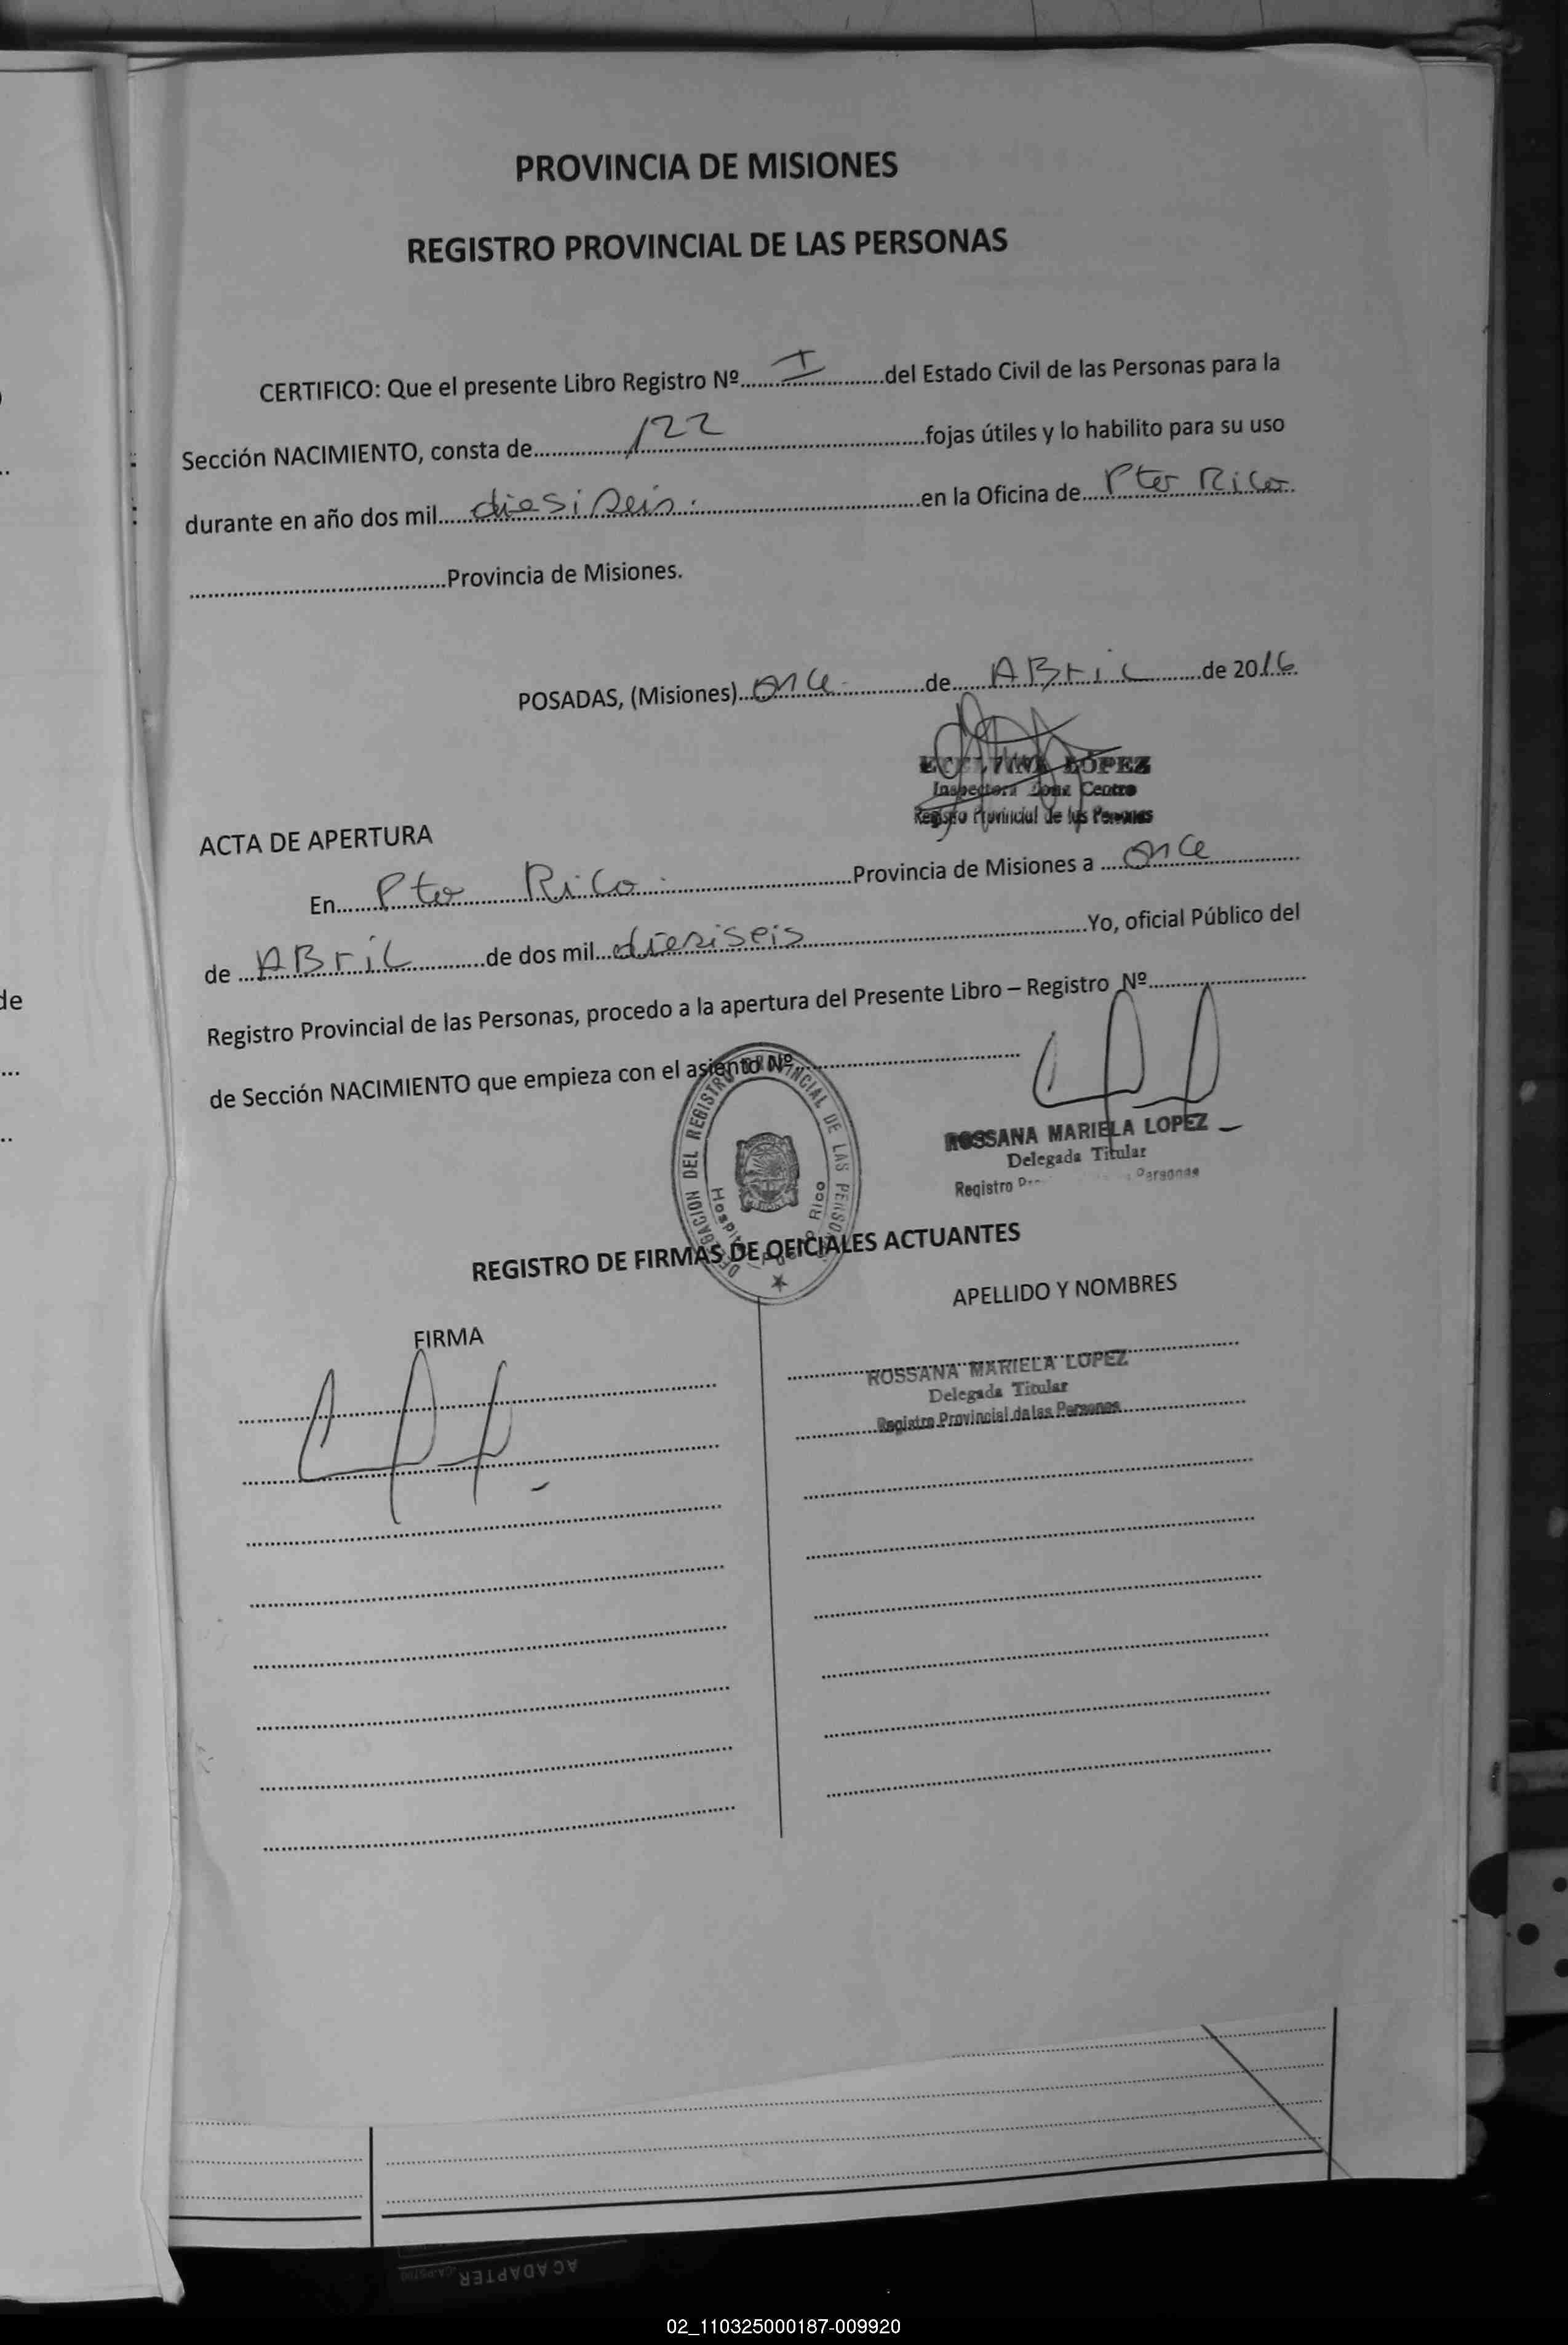 PROVINCIA DE MISIONES
REGISTRO PROVINCIAL DE LAS PERSONAS
CERTIFICO: Que el presente Libro Registro Nº.....I.....del Estado Civil de las Personas para la
Sección NACIMIENTO, consta de.....122.....fojas útiles y lo habilito para su uso
durante en año dos mil.....diesiseis.....en la Oficina de.....Pto Rico.....
.....Provincia de Misiones.
POSADAS, (Misiones)...once.....de.....ABril.....de 2016
LOPEZ
Inspectora Zona Centro
Registro Provincial de las Personas
ACTA DE APERTURA
En.....Pto Rico.....Provincia de Misiones a.....once.....
de.....ABril.....de dos mil...diesiseis.....Yo, oficial Público del
Registro Provincial de las Personas, procedo a la apertura del Presente Libro – Registro Nº.....
de Sección NACIMIENTO que empieza con el asiento Nº.....
ROSSANA MARIELA LOPEZ
Delegada Titular
Registro Personas
DELEGACION DEL REGISTRO PROVINCIAL DE LAS PERSONAS
Hospital Puerto Rico
REGISTRO DE FIRMAS DE OFICIALES ACTUANTES
FIRMA
APELLIDO Y NOMBRES
ROSSANA MARIELA LOPEZ
Delegada Titular
Registro Provincial de las Personas
de
AC ADAPTER
02_110325000187-009920